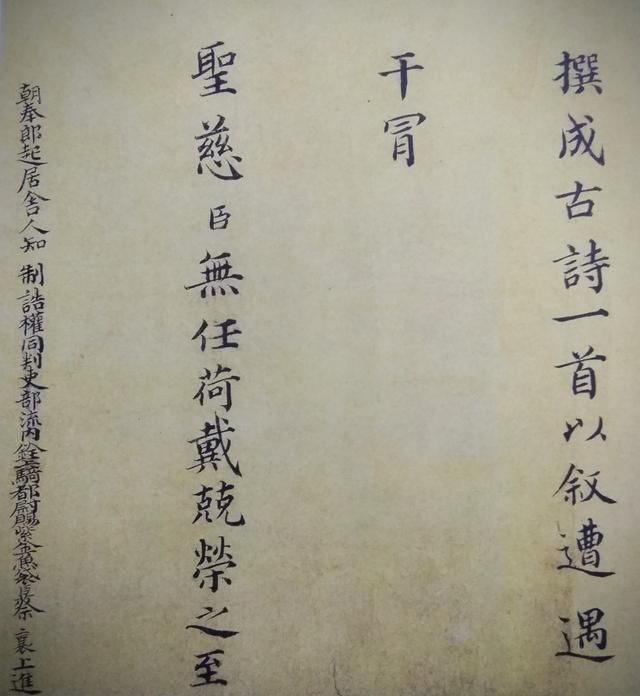 撰成古詩一首以叙遭遇
干冒
聖慈臣無任荷戴兢榮之至
朝奉郎起居舍人知制誥權同判吏部流内銓騎都尉賜紫金魚袋臣蔡襄上進